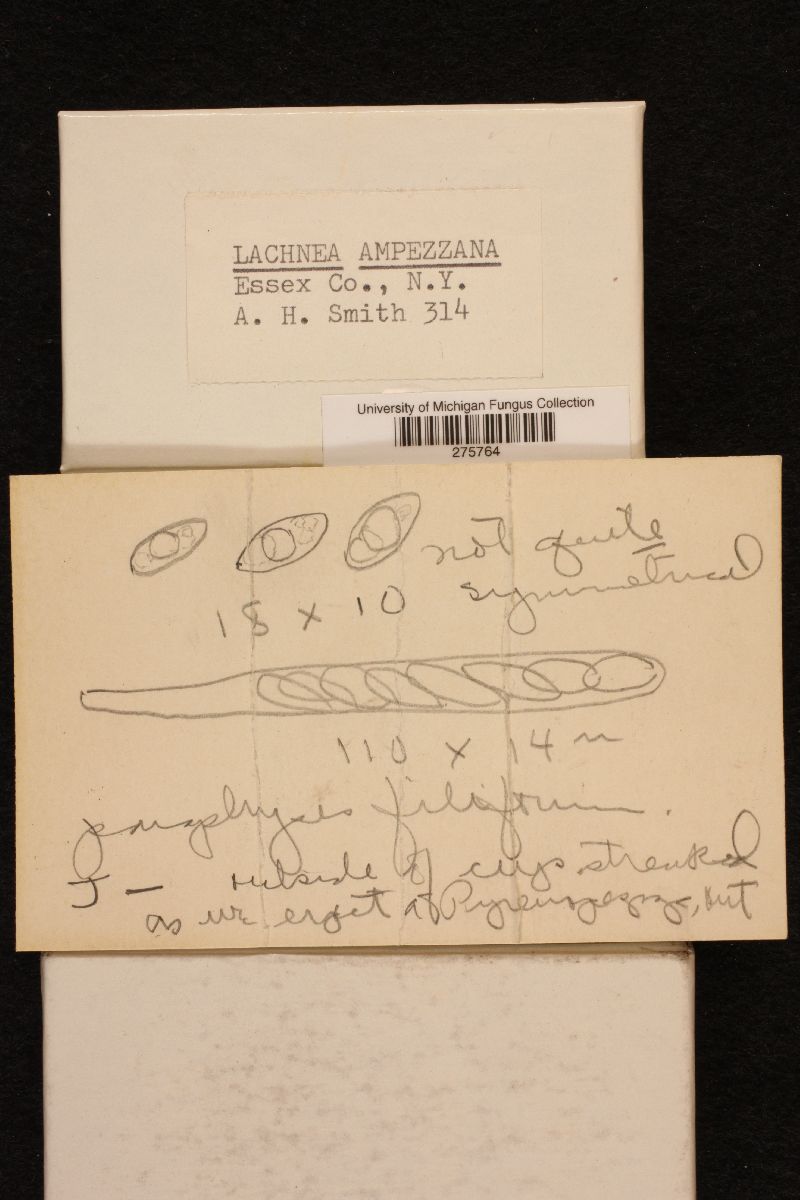 LACHNEA AMPEZZANA
Essex Co., N.Y.
A. H. Smith 314
University of Michigan Fungus Collection
275764
not quite
symmetrical
18 x 10
110 x 14
paraphyses filiform.
J - outside of cups streaked
as in of Pyrenopeziza, but